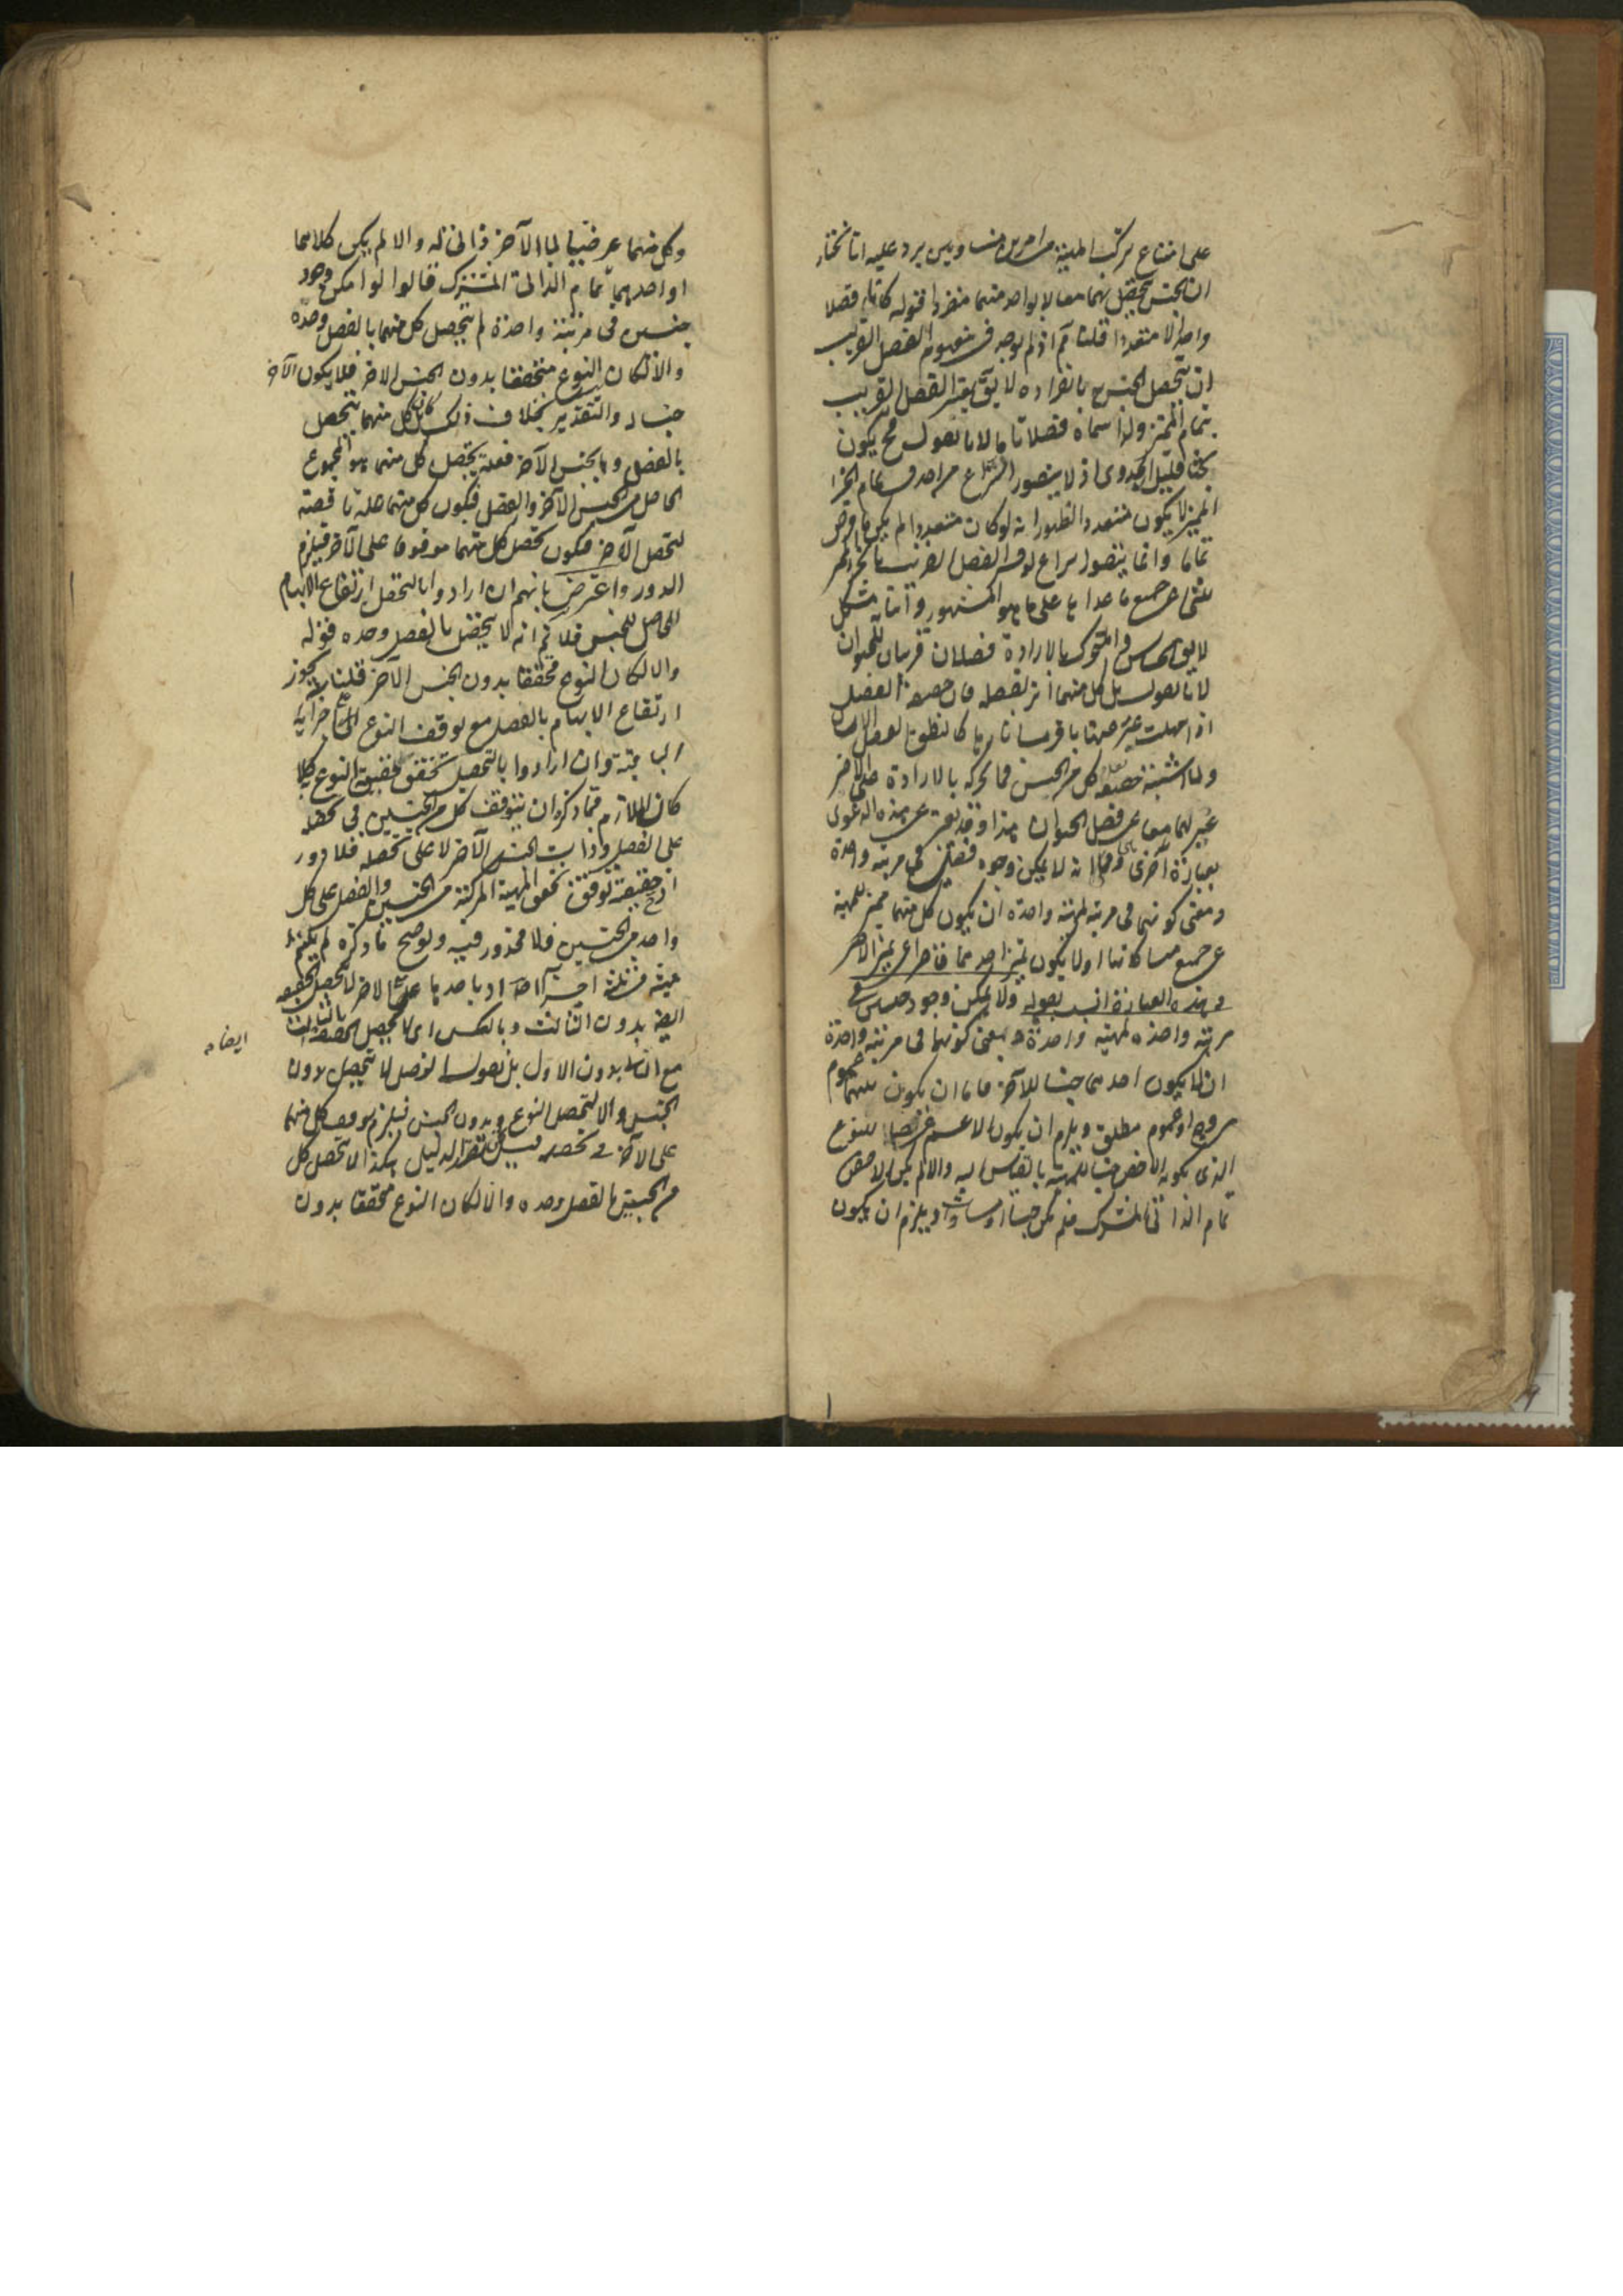 على امتناع تركب المهية من امرين متساويين يرد عليه انا نختار
ان الجنس يتحصل بهما معا لا بواحد منهما منفردا قوله كانا فصلا
واحدا لا متعددا قلنا ثم اذ لم يوجد في مفهوم الفصل القريب
ان يتحصل الجنس بانفراده لا يق يعتبر الفصل القريب
تمام المميز ولذا سماه فصلا تاما لانا نقول فح يكون
بحثا قليل الجدوى اذ لا يتصور النزاع من احد في تمام الجزء
المميز لا يكون متعددا لظهور انه لو كان متعددا لم يكن ما فرض
تماما وانما يتصور نزاع لو فسر الفصل القريب بالجزء المميز
للشئ عن جميع ما عداها على ما هو المشهور واما
لا يق الحساس والمتحرك بالارادة فصلان قريبان للحيوان
لانا نقول بل كل منهما اثر لفصله فان حقيقة الفصل
اذا جهلت عبر عنها باقرب اثارها كالنطق لفصل الانسان
ولما اشتبه تقدم كل من الحس والحركة بالارادة على الاخر
عبر بهما معا عن فصل الحيوان هذا وقد يعبر عن هذه الدعوى
بعبارة اخرى وهي انه لا يمكن وجود فصلين في مرتبة واحدة
ومعنى كونهما في مرتبة لمهية واحدة ان يكون كل منهما مميزا للمهية
عن جميع مشاركاتها او لا يكون تميز احدهما قاصرا عن تميز الاخر
وهذه العبارة انسب بقوله ولا يمكن وجود جنسين في
مرتبة واحدة لمهية واحدة ومعنى كونهما في مرتبة واحدة
ان لا يكون احدهما جنسا للاخر فاما ان يكون بينهما عموم
من وجه او عموم مطلق ويلزم ان يكون الاعم عرضيا للنوع
الذي يكون الاخص جنسا للمهية بالقياس اليه والا لم يكن الاخص
تمام الذاتي المشترك فلم يكن جنسا او مساواة ويلزم ان يكون
وكل منهما عرضيا لما الآخر ذاتي له والا لم يكن كلاهما
او احدهما تمام الذاتي المشترك قالوا لو امكن وجود
جنسين في مرتبة واحدة لم يتحصل كل منهما بالفصل وحده
والا لكان النوع متحققا بدون الجنس الاخر فلا يكون الآخر
جنسا والتقدير بخلاف ذلك بل كان كل منهما يتحصل
بالفصل وبالجنس الآخر فعلة تحصل كل منهما هو المجموع
الحاصل من الجنس الآخر والفصل فيكون كل منهما علة ناقصة
لتحصل الآخر فيكون تحصل كل منهما موقوفا على الآخر فيلزم
الدور واعترض بانهم ان ارادوا بالتحصل ارتفاع الابهام
الحاصل للجنس فلا ثم انه لا يتحصل بالفصل وحده قوله
والا لكان النوع متحققا بدون الجنس الآخر قلنا يجوز
ارتفاع الابهام بالفصل مع توقف النوع على اجزائه
الباقية وان ارادوا بالتحصل تحقق حقيقة النوع كلا
كان اللازم مما ذكر ان يتوقف كل من الجنسين في تحصله
على الفصل وذات الجنس الآخر لا على تحصله فلا دور
اذ ح حقيقة توقف تحقق المهية المركبة من الجنسين والفصل على كل
واحد من الجنسين فلا محذور فيه وتوضح ما ذكره لم يكن
اجزاء اذ باحدها على الاخر لا تحصل الحقيقة
ايضا بدون الثالث وبالعكس اى لا تحصل الحقيقة بالثالث
ايضا
مع الثاني بدون الاول بل نقول الفصل لا يتحصل بدون
الجنس والا لتحصل النوع بدون الجنس فيلزم توقف كل منهما
على الآخر في تحصله فليكن تقرير الدليل هكذا لا يتحصل كل
من الجنسين بالفصل وحده والا لكان النوع متحققا بدون